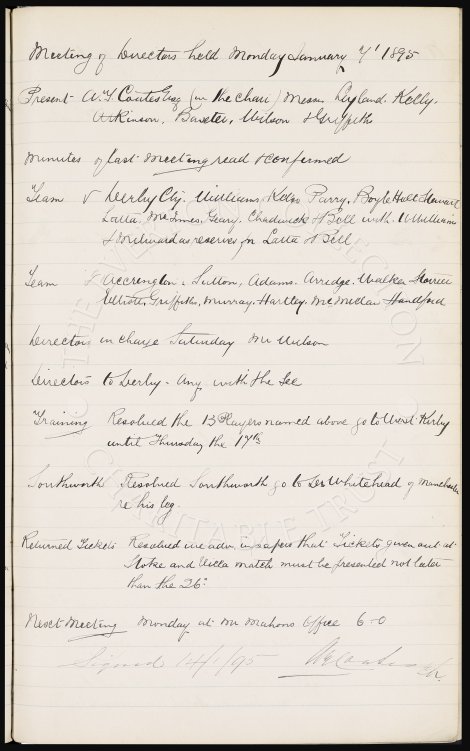 Meeting of Directors held Monday January 7' 1895
Present W. F. Coates Esq (in the chair) Messrs Leyland. Kelly.
Atkinson, Baxter, Wilson & Griffiths
Minutes of last Meeting read & confirmed
Team v Derby Cty. Williams, Kelso Parry, Boyle Holt Stewart
Latta, McInnes, Geary. Chadwick & Bell with W Williams
& Milward as reserves for Latta & Bell
Team v Accrington. Sutton, Adams. Arridge. Walker Storrier
Elliott, Griffiths, Murray. Hartley. McMillan Handford
Directors in charge Saturday Mr Wilson
Directors to Derby - Any with the Sec
Training Resolved the 13 Players named above go to West Kirby
until Thursday the 17th
Southworth Resolved Southworth go to Dr Whitehead of Manchester
re his leg.
Returned Tickets Resolved we adv. in papers that Tickets given out at
Stoke and Villa match must be presented not later
than the 26'
Next Meeting Monday at Mr Mahons Office 6-0
Signed 14/1/95 Coates Ch.
THE EVERTON COLLECTION
CHARITABLE TRUST